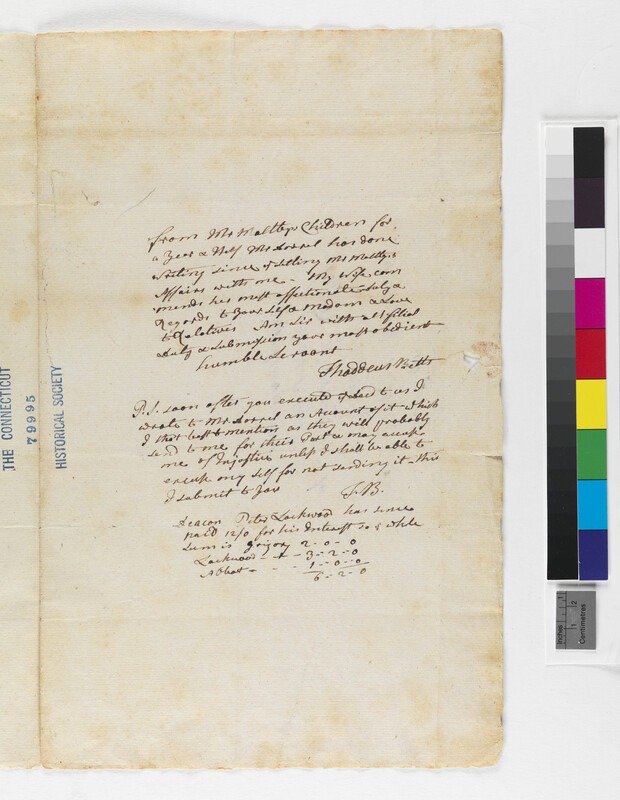 from Mrs Maltbys Children for
a Year & Half Mr Lorrel has done
writing since of setling Mrs Maltbys
Affairs with me - My wife com
mends her most affectionate Duty &
Regards to your self & Madam & Love
to Relatives Am Sir with all filial
Duty & Submission your most obedient
humble Servant
Thaddeus Betts
P.S. soon after you executed Deed to us I
wrote to Mr Lorrel an Account of it which
I thot best to mention as they will probably
send to me for their Part & may accuse
me of Injustice unless I shall be able to
excuse my self for not sending it - this
I submit to you
T.B.
Deacon Peter Lockwood has since
paid 12/0 for his Interest so whole
sum is Grigory 2-0-0
Lockwood - 3-2-0
Abbot - - 1-0-0
6-2-0
THE CONNECTICUT
79995
HISTORICAL SOCIETY
Inches
1
1 2
Centimetres